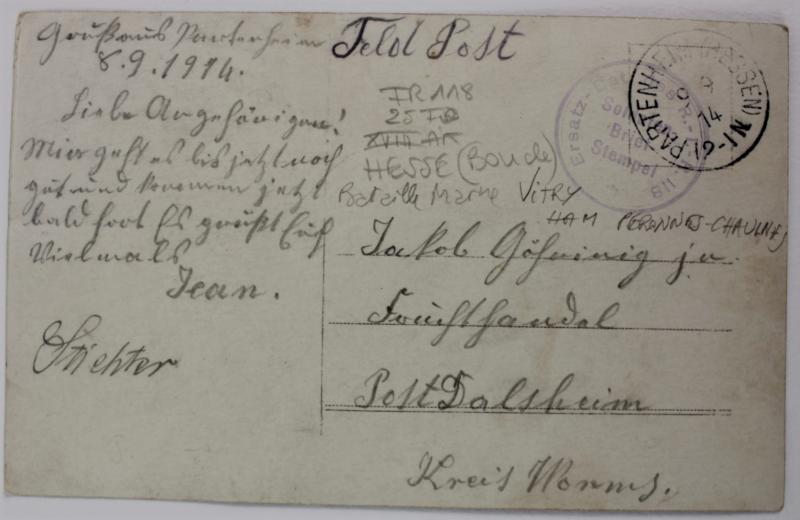 Gruß aus Partenheim
8.9.1914.
Liebe Angehörigen!
Mir geht es bis jetzt noch
gut und kommen jetzt
bald fort Es grüßt Euch
Vielmals
Jean.
Stichter
Feld Post
IR 118
25 ID
XVIII AK
HESSE (Boude)
Bataille Marne VITRY
HAM PERONNES-CHAULNES
Ersatz-
Stempel
118
PARTENHEIM (HESSEN)
14
12-1N
Jakob Göhring jr.
Fruchthandel
Post Dalsheim
Kreis Worms.